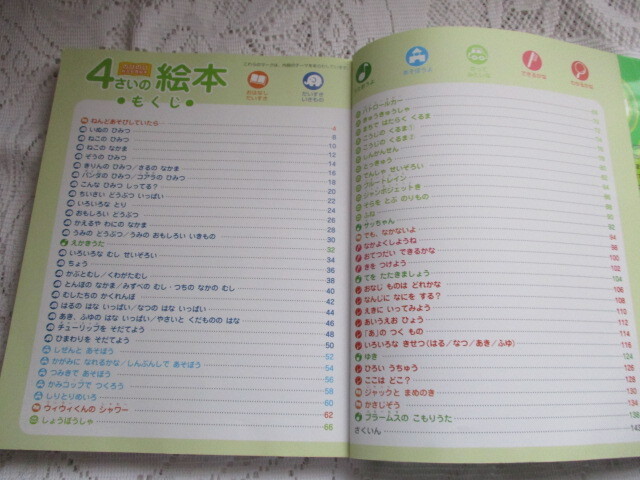 4さいの 絵本
●もくじ●
おはなし
だいすき
だいすき
いきもの
ねんどあそびしていたら 4
いぬの ひみつ 8
ねこの ひみつ 10
ねこの なかま 12
ぞうの ひみつ 14
きりんの ひみつ/さるの なかま 16
パンダの ひみつ/コアラの ひみつ 18
こんな ひみつ しってる? 20
ちいさい どうぶつ いっぱい 22
いろいろな とり 24
おもしろい どうぶつ 26
かえるや わにの なかま 28
うみの どうぶつ/うみの おもしろい いきもの 30
えかきうた 32
いろいろな むし せいぞろい 34
ちょう 36
かぶとむし/くわがたむし 38
とんぼの なかま/みずべの むし・つちの なかの むし 40
むしたちの かくれんぼ 42
はるの はな いっぱい/なつの はな いっぱい 44
あき、ふゆの はな いっぱい/やさいと くだものの はな 46
チューリップを そだてよう 48
ひまわりを そだてよう 50
しぜんと あそぼう 52
かがみに なれるかな/しんぶんしで あそぼう 54
つみきで あそぼう 56
かみコップで つくろう 58
しりとりめいろ 60
ウィウィくんの シャワー 62
しょうぼうしゃ 66
パトロールカー
きゅうきゅうしゃ
まちで はたらく くるま
こうじの くるま①
こうじの くるま②
しんかんせん
とっきゅう
でんしゃ せいぞろい
ブルートレイン
ジャンボジェットき
そらを とぶ のりもの
ふね
サッちゃん 92
でも、なかないよ 94
なかよくしようね 98
おてつだい できるかな 100
きを つけよう 102
てを たたきましょう 104
おなじ ものは どれかな 106
なんじに なにを する? 108
えきに いってみよう 110
あいうえお ひょう 112
「あ」の つく もの 114
いろいろな きせつ(はる/なつ/あき/ふゆ) 116
ゆき 124
ひろい うちゅう 126
ここは どこ? 128
ジャックと まめのき 130
かさじぞう 134
ブラームスの こもりうた 138
さくいん 143